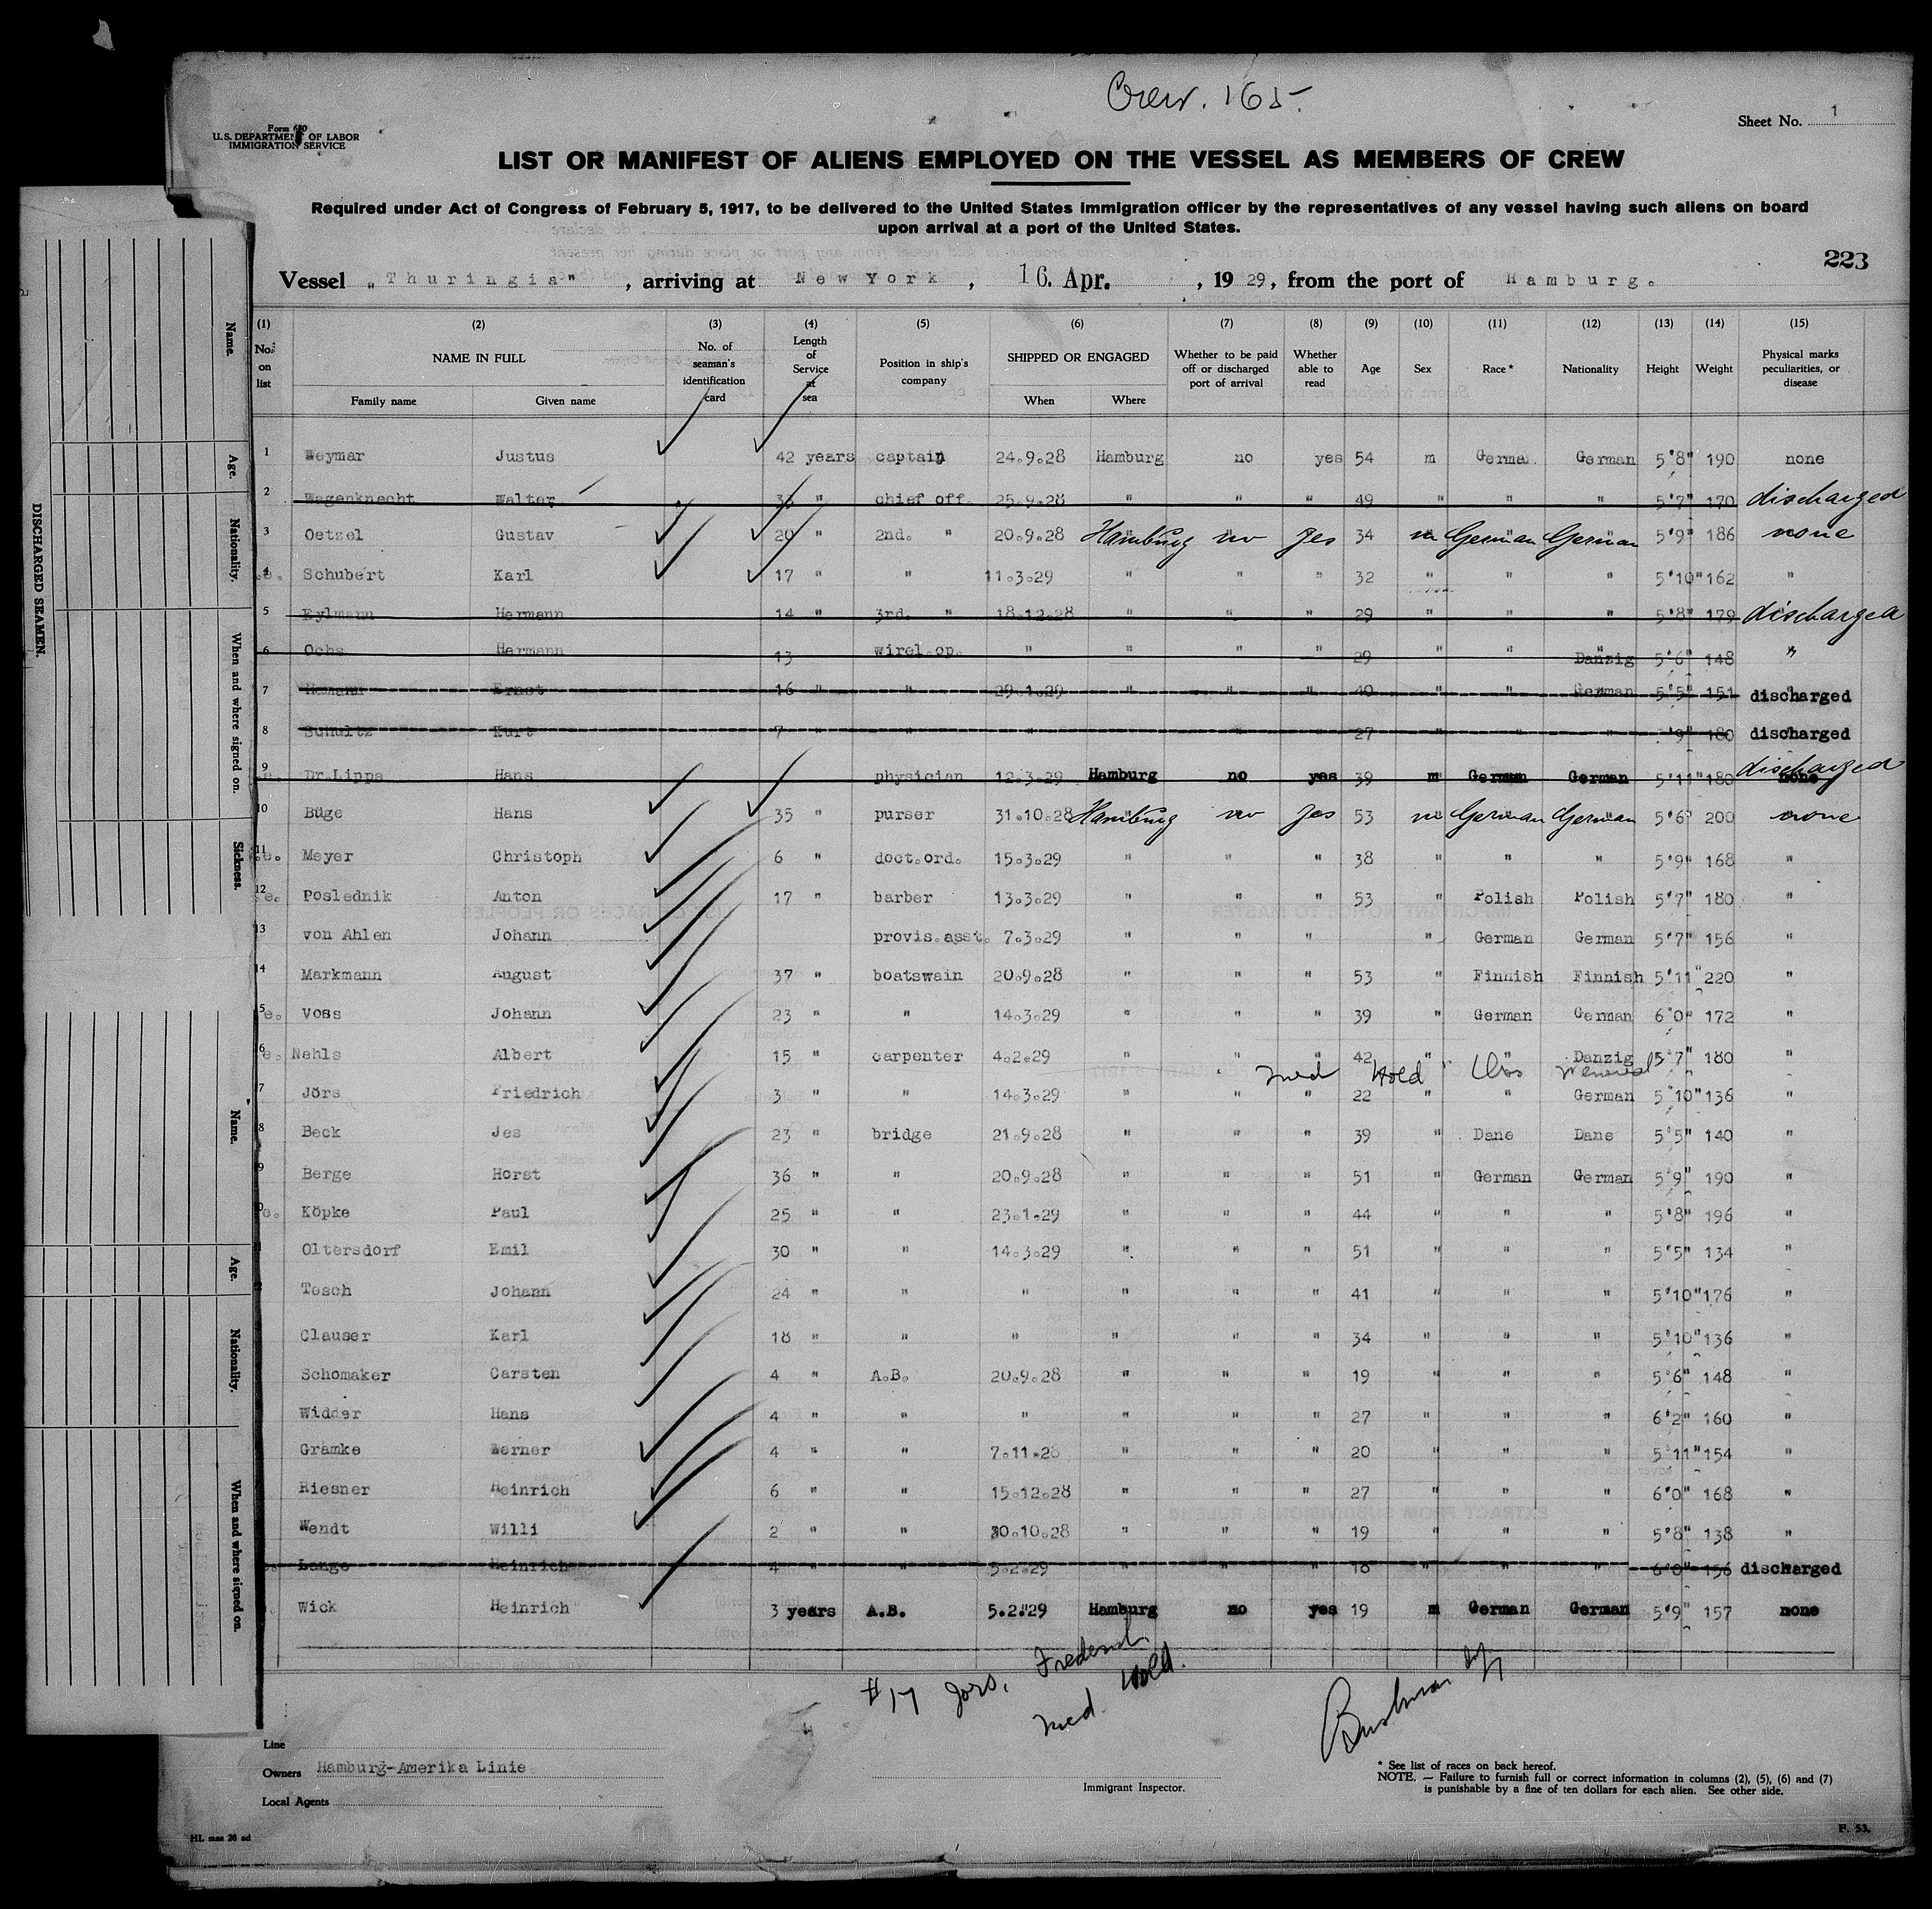 Crew. 165.
Form 680
U.S. DEPARTMENT OF LABOR
IMMIGRATION SERVICE
Sheet No. 1
LIST OR MANIFEST OF ALIENS EMPLOYED ON THE VESSEL AS MEMBERS OF CREW
Required under Act of Congress of February 5, 1917, to be delivered to the United States immigration officer by the representatives of any vessel having such aliens on board
upon arrival at a port of the United States.
223
Vessel „Thuringia", arriving at New York, 16. Apr., 1929, from the port of Hamburg.
(1) (2) (3) (4) (5) (6) (7) (8) (9) (10) (11) (12) (13) (14) (15)
No. on list NAME IN FULL Family name Given name No. of seaman's identification card Length of Service at sea Position in ship's company SHIPPED OR ENGAGED When Where Whether to be paid off or discharged port of arrival Whether able to read Age Sex Race* Nationality Height Weight Physical marks peculiarities, or disease
1 Weymar Justus 42 years captain 24.9.28 Hamburg no yes 54 m German German 5'8" 190 none
2 Wagenknecht Walter 33 " chief off. 25.9.28 " " " 49 " " " 5'7" 170 discharged
3 Oetzel Gustav 20 " 2nd. " 20.9.28 Hamburg no yes 34 m German German 5'9" 186 none
4 Schubert Karl 17 " " 11.3.29 " " " 32 " " " 5'10" 162 "
5 Eylmann Hermann 14 " 3rd. " 18.12.28 " " " 29 " " " 5'8" 179 discharged
6 Ochs Hermann 13 wirel.op. " " " " 29 " " Danzig 5'6" 148 "
7 Hamann Ernst 16 " " 29.1.29 " " " 40 " " German 5'5" 151 discharged
8 Schultz Kurt 7 " " " " " " 27 " " " '9" 180 discharged
9 Dr.Lipps Hans physician 12.3.29 Hamburg no yes 39 m German German 5'11" 180 none discharged
10 Büge Hans 35 " purser 31.10.28 Hamburg no yes 53 m German German 5'6" 200 none
11 e. Meyer Christoph 6 " doct.ord. 15.3.29 " " " 38 " " " 5'9" 168 "
12 e. Poslednik Anton 17 " barber 13.3.29 " " " 53 " Polish Polish 5'7" 180 "
13 von Ahlen Johann provis.asst. 7.3.29 " " " " German German 5'7" 156 "
14 Markmann August 37 " boatswain 20.9.28 " " " 53 " Finnish Finnish 5'11" 220 "
5 e. Voss Johann 23 " " 14.3.29 " " " 39 " German German 6'0" 172 "
6 e. Nehls Albert 15 " carpenter 4.2.29 " " " 42 " " Danzig 5'7" 180 "
med Hold
7 Jörs Friedrich 3 " " 14.3.29 " " " 22 " " German 5'10" 136 "
8 Beck Jes 23 " bridge 21.9.28 " " " 39 " Dane Dane 5'5" 140 "
9 Berge Horst 36 " " 20.9.28 " " " 51 " German German 5'9" 190 "
0 e. Köpke Paul 25 " " 23.1.29 " " " 44 " " " 5'8" 196 "
Oltersdorf Emil 30 " " 14.3.29 " " " 51 " " " 5'5" 134 "
Tesch Johann 24 " " " " " " 41 " " " 5'10" 176 "
Clauser Karl 18 " " " " " " 34 " " " 5'10" 136 "
Schomaker Carsten 4 " A.B. 20.9.28 " " " 19 " " " 5'6" 148 "
Widder Hans 4 " " " " " " 27 " " " 6'2" 160 "
Gramke Werner 4 " " 7.11.28 " " " 20 " " " 5'11" 154 "
Riesner Heinrich 6 " " 15.12.28 " " " 27 " " " 6'0" 168 "
Wendt Willi 2 " " 30.10.28 " " " 19 " " " 5'8" 138 "
Lange Heinrich 4 " " 5.2.29 " " " 18 " " " 6'0" 156 discharged
Wick Heinrich 3 years A.B. 5.2.29 Hamburg no yes 19 m German German 5'9" 157 none
#17 Jors, Frederich
med. Hold.
Line
Owners Hamburg-Amerika Linie.
Local Agents
Immigrant Inspector.
* See list of races on back hereof.
NOTE. — Failure to furnish full or correct information in columns (2), (5), (6) and (7)
is punishable by a fine of ten dollars for each alien. See other side.
HL mas 28 ad
F. 53.
DISCHARGED SEAMEN.
Name.
Age.
Nationality.
When and where signed on.
Sickness.
Name.
Age.
Nationality.
When and where signed on.